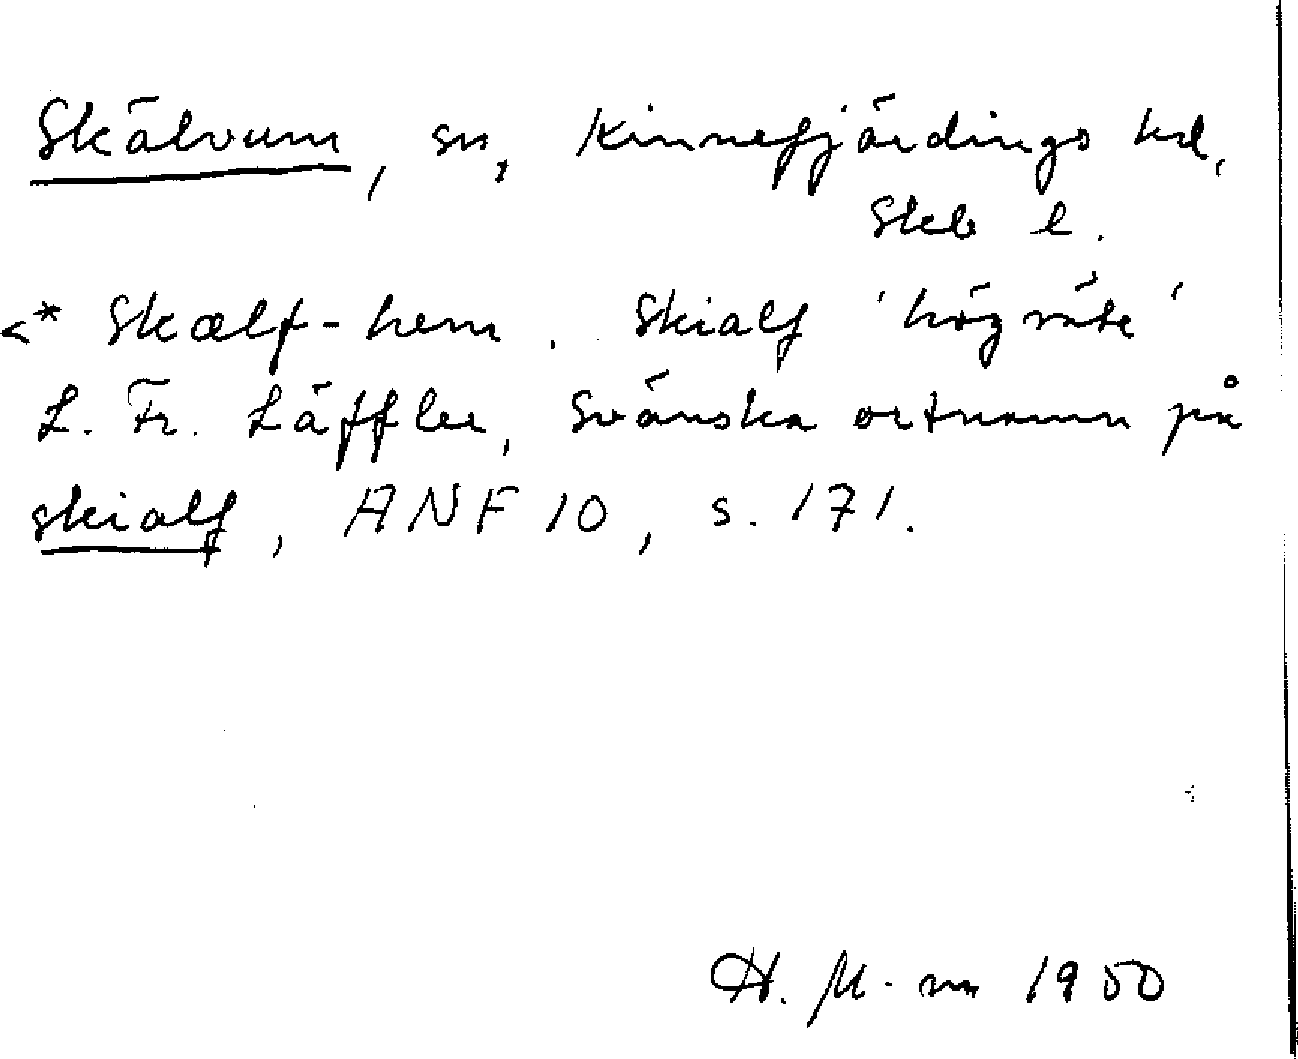 Skälvum, sn, Kinnefjärdings hd,
Skb l.
<* Skælf-hem. Skialf 'högsäte'
L. Fr. Läffler, Svänska ortnamn på
skialf, ANF 10, s. 171.
H. M-nn 1950